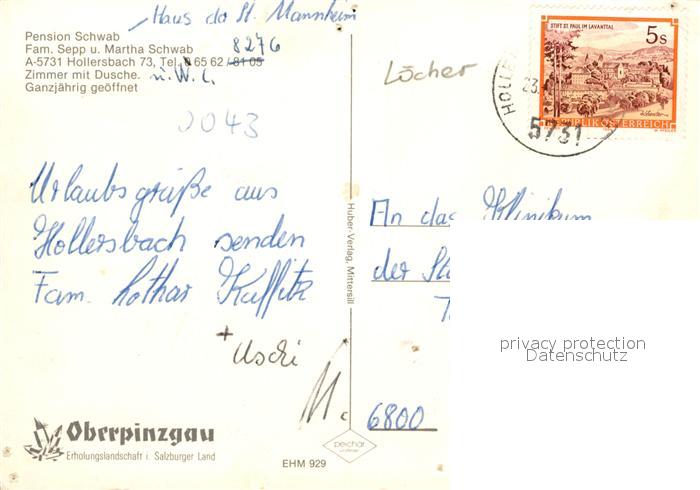 Haus der St. Mannheim
Pension Schwab
Fam. Sepp u. Martha Schwab
8276
A-5731 Hollersbach 73, Tel. 0 65 62 / 81 05
Zimmer mit Dusche. u. W. C.
Ganzjährig geöffnet
0043
Urlaubsgrüße aus
Hollersbach senden
Fam. Lothar
+
Uschi
Oberpinzgau
Erholungslandschaft i. Salzburger Land
EHM 929
Huber-Verlag, Mittersill
Löcher
STIFT ST. PAUL IM LAVANTTAL
5s
REPUBLIK ÖSTERREICH
HOLLE
23.
5731
An das Klinikum
der
6800
privacy protection
Datenschutz